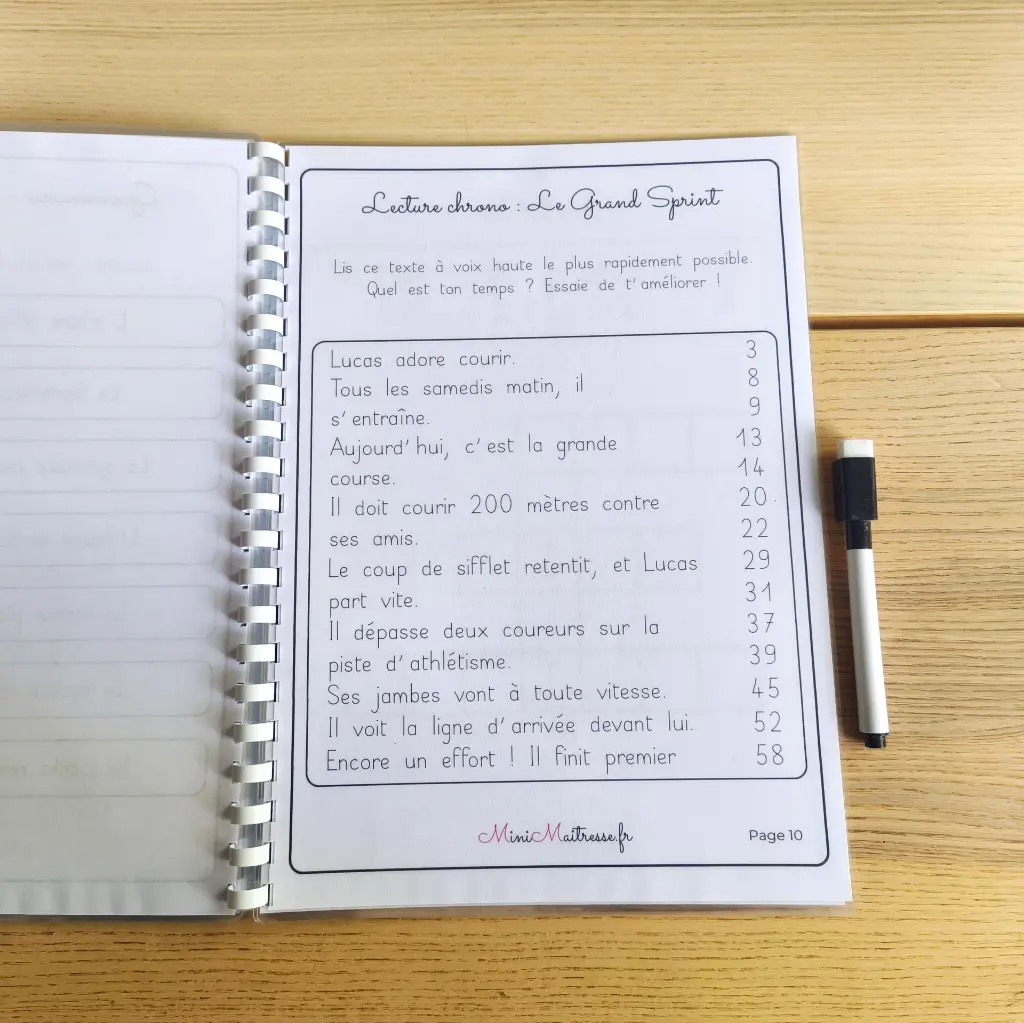 Lecture chrono : Le Grand Sprint
Lis ce texte à voix haute le plus rapidement possible.
Quel est ton temps ? Essaie de t'améliorer !
Lucas adore courir. 3
Tous les samedis matin, il 8
s'entraîne. 9
Aujourd'hui, c'est la grande 13
course. 14
Il doit courir 200 mètres contre 20
ses amis. 22
Le coup de sifflet retentit, et Lucas 29
part vite. 31
Il dépasse deux coureurs sur la 37
piste d'athlétisme. 39
Ses jambes vont à toute vitesse. 45
Il voit la ligne d'arrivée devant lui. 52
Encore un effort ! Il finit premier 58
MiniMaitresse.fr
Page 10